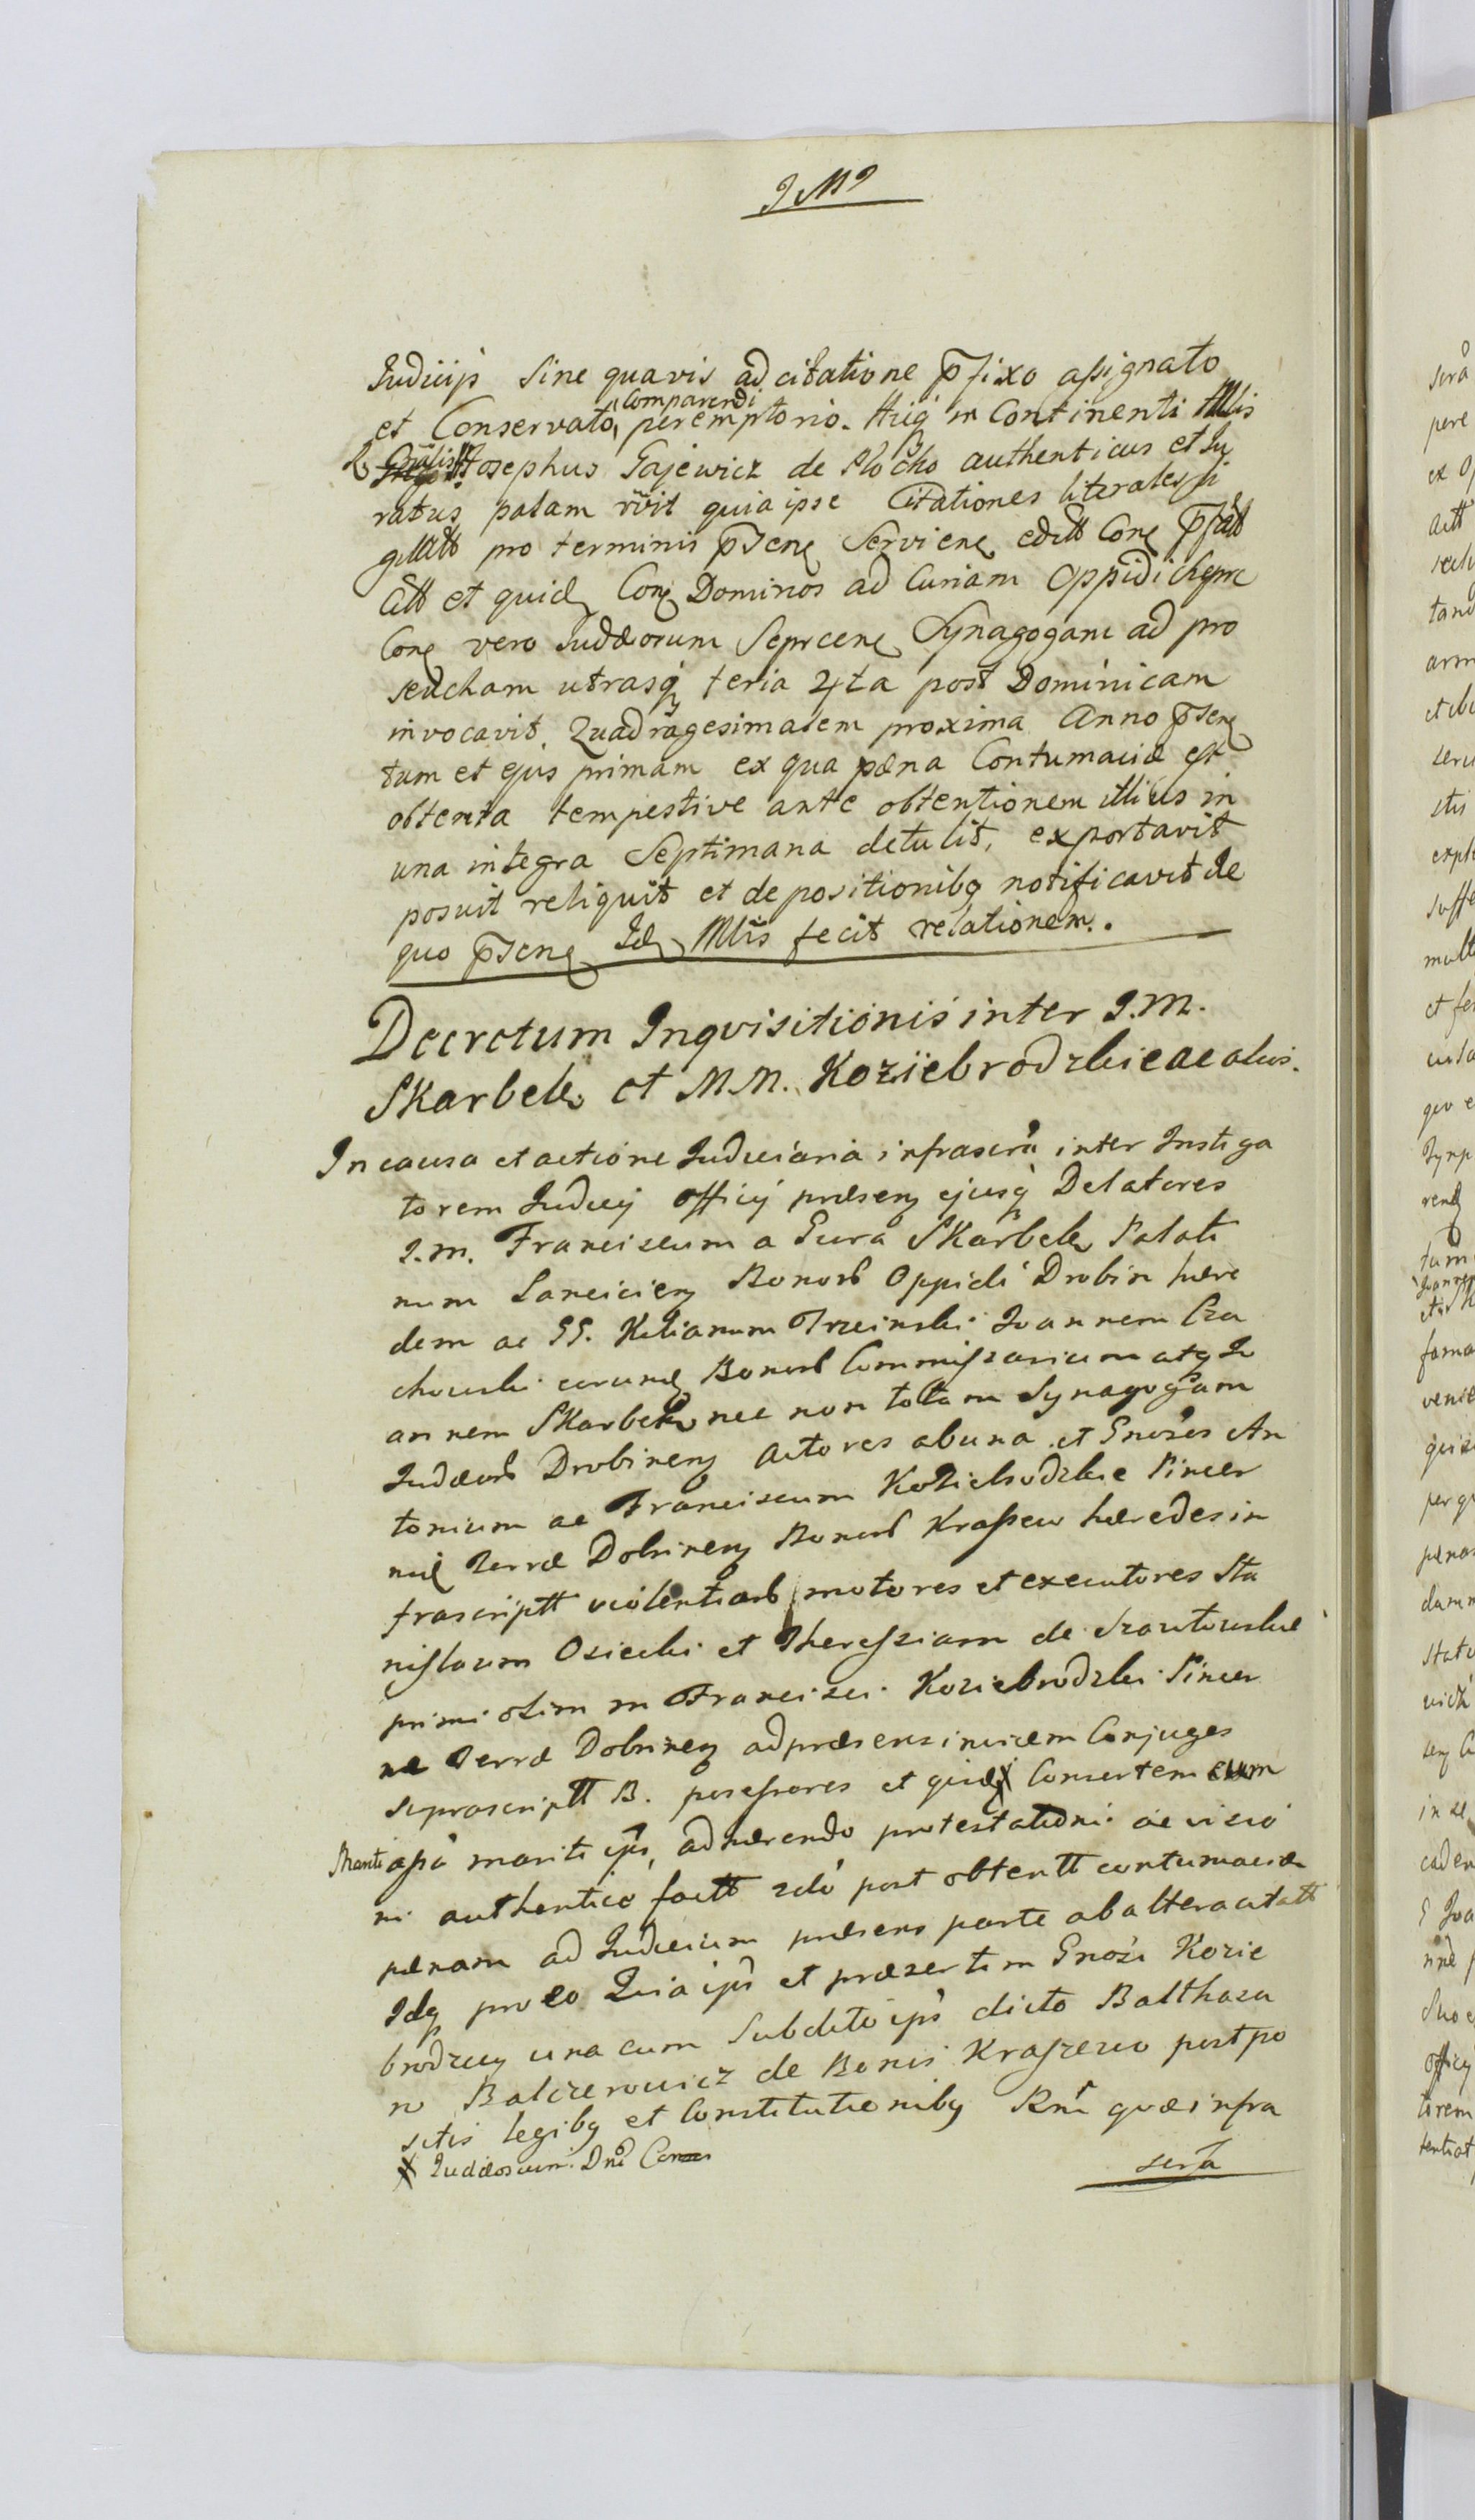 Judicijs sine quavis ad citatione pfixo assignato
et Conservato, Comparendi peremptorio. Huiq in Continenti Mlis
R Gnalis Josephus Gajewicz de Plocko authenticus et Ju
ratus palam rvit quia ipse Citationes literales si
gillatt pro terminis psenz Servienz editt Conz pfatt
Citt et quid Conz Dominos ad Curiam Oppidi
Conz vero Judæorum Seprcenz Synagogam ad pro
seucham utrasq feria 4ta post Dominicam
invocavit Quadragesimalem proxima Anno psen
tum et ejus primam ex qua pæna Contumaciæ est
obtenta tempestive ante obtentionem illius in
una integra Septimana detulit, exportavit
posuit reliquit et de positionibq notificavit de
quo psenz Id Mlis fecit relationem.
Decretum Inqvisitionis inter J.M.
Skarbek et M.M. Koziebrodzkie ac alios.
In causa et actione Judiciaria infrascra inter Instiga
torem Judicij officij præsenz ejusq Delatores
J.m. Franciscum a Gura Skarbek Palati
num Lanciciens Bonorb Oppidi Drobin hære
dem ac GG. Kilianum Trzcinski Joannem Cza
chowski eorund Bonorb Commissarium atq Jo
annem Skarbek nec non totam Synagogam
Judæorb Drobinenz actores ab una et Gnosos An
tonium ac Franciscum Koziebrodzkie Pincer
nid Terræ Dobrinenz Bonorb Krassew hæredes in
frascriptt violentiarb motores et executores Sta
nislaum Osiecki et Theressiam de Szoutowskie
primi olim M Francisci Koziebrodzki Pincer
næ Terræ Dobrinenz ad præsens invicem Conjuges
suprascriptt B. possessores et quid X Consortem cum
assa mariti ips, adhærendo protestationi ac visio
ni authentice factt zelo post obtentt contumaciæ
pænam ad Judicium præsens parte ab altera citatt
Idq pro eo Quia ips et præsertim Gnosi Kozie
brodzcy una cum Subdito ips dicto Balthaza
ro Balcerowicz de Bonis Kraszewo postpo
sitis legibq et Constitutionibq Rni quæ infra
X Judæos cum Dno
scra